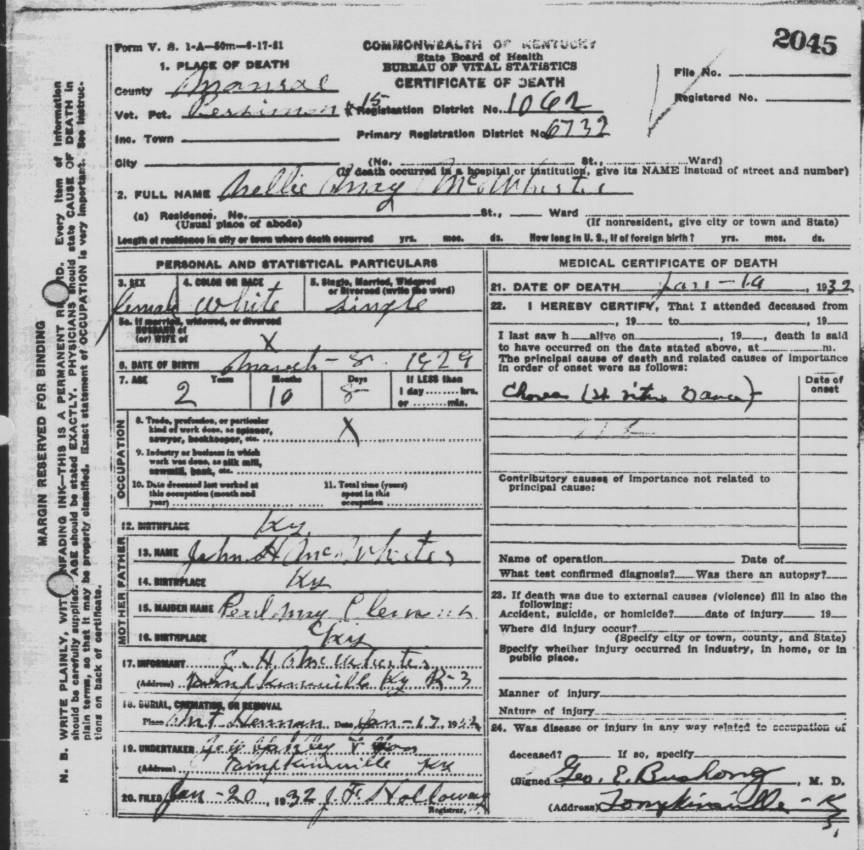 2045
Form V. S. 1-A—50m—6-17-31
COMMONWEALTH OF KENTUCKY
State Board of Health
BUREAU OF VITAL STATISTICS
CERTIFICATE OF DEATH
1. PLACE OF DEATH
County Monroe
File No.
Registered No.
Vot. Pct. Persimmon 15 Registration District No. 1062
Inc. Town Primary Registration District No. 6732
City (No. St., Ward)
(If death occurred in a hospital or institution, give its NAME instead of street and number)
2. FULL NAME Nellie May McWhorter
(a) Residence. No. St., Ward
(Usual place of abode) (If nonresident, give city or town and State)
Length of residence in city or town where death occurred yrs. mos. ds. How long in U. S., if of foreign birth? yrs. mos. ds.
PERSONAL AND STATISTICAL PARTICULARS
3. SEX female
4. COLOR OR RACE White
5. Single, Married, Widowed or Divorced (write the word) Single
5a. If married, widowed, or divorced
HUSBAND of
(or) WIFE of X
6. DATE OF BIRTH March - 8 1929
7. AGE Years Months Days If LESS than
2 10 8 1 day hrs.
or min.
OCCUPATION
8. Trade, profession, or particular
kind of work done, as spinner,
sawyer, bookkeeper, etc. X
9. Industry or business in which
work was done, as silk mill,
sawmill, bank, etc.
10. Date deceased last worked at
this occupation (month and
year)
11. Total time (years)
spent in this
occupation
12. BIRTHPLACE Ky
FATHER
13. NAME John H McWhorter
14. BIRTHPLACE Ky
MOTHER
15. MAIDEN NAME Pearl May
16. BIRTHPLACE Ky
17. INFORMANT H. McWhorter
(Address) Tompkinsville Ky R-3
18. BURIAL, CREMATION, OR REMOVAL
Place Mt Herman Date Jan - 17 1932
19. UNDERTAKER & Son
(Address) Tompkinsville Ky
20. FILED Jan - 20, 1932 J. F. Holloway
Registrar.
MEDICAL CERTIFICATE OF DEATH
21. DATE OF DEATH Jan - , 1932
22. I HEREBY CERTIFY, That I attended deceased from
, 19 to , 19
I last saw h alive on , 19 , death is said
to have occurred on the date stated above, at m.
The principal cause of death and related causes of importance
in order of onset were as follows:
Date of
onset
Chorea (St Vitus Dance)
Contributory causes of importance not related to
principal cause:
Name of operation Date of
What test confirmed diagnosis? Was there an autopsy?
23. If death was due to external causes (violence) fill in also the
following:
Accident, suicide, or homicide? date of injury 19
Where did injury occur?
(Specify city or town, county, and State)
Specify whether injury occurred in industry, in home, or in
public place.
Manner of injury
Nature of injury
24. Was disease or injury in any way related to occupation of
deceased? If so, specify
(Signed) Geo. E. Bushong, M. D.
(Address) Tompkinsville - Ky
MARGIN RESERVED FOR BINDING
N. B. WRITE PLAINLY, WITH UNFADING INK—THIS IS A PERMANENT RECORD. Every item of information
should be carefully supplied. AGE should be stated EXACTLY. PHYSICIANS should state CAUSE OF DEATH in
plain terms, so that it may be properly classified. Exact statement of OCCUPATION is very important. See instruc-
tions on back of certificate.